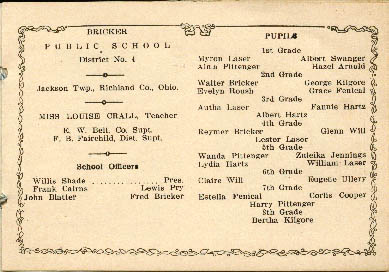 BRICKER
PUBLIC SCHOOL
District No. 4
Jackson Twp., Richland Co., Ohio.
MISS LOUISE CRALL, Teacher
E. W. Bell, Co. Supt.
F. B. Fairchild, Dist. Supt.
School Officers
Willis Shade ............ Pres.
Frank Cairns Lewis Fry
John Blatter Fred Bricker
PUPILS
1st Grade
Myron Laser Albert Swanger
Alma Pittenger Hazel Arnold
2nd Grade
Walter Bricker George Kilgore
Evelyn Roush Grace Fenical
3rd Grade
Autha Laser Fannie Hartz
Albert Hartz
4th Grade
Reymer Bricker Glenn Will
Lester Laser
5th Grade
Wanda Pittenger Zuleika Jennings
Lydia Hartz William Laser
6th Grade
Claire Will Eugene Ullery
7th Grade
Estella Fenical Curtis Cooper
Harry Pittenger
8th Grade
Bertha Kilgore